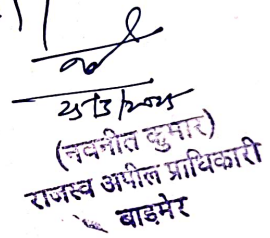 25/3/2025
(नवनीत कुमार)
राजस्व अपील प्राधिकारी
बाड़मेर